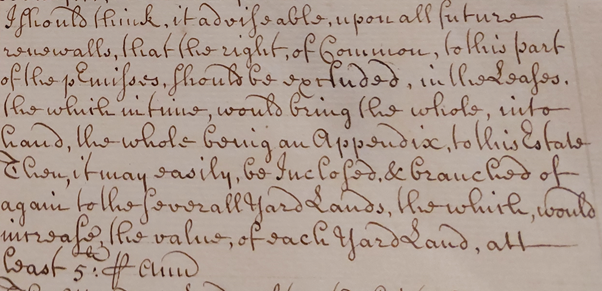 I should think, it adviseable, upon all future
renewalls, that the right, of Common, to this part
of the pEmisses, should be excluded, in the Leases.
the which in time, would bring the whole, into
hand, the whole being an Appendix, to this Estate
Then, it may easily, be Inclosed, & branched of
again to the severall Yard Lands, the which, would
increase, the value, of each Yard Land, att
least 5s: ⅌ Ann